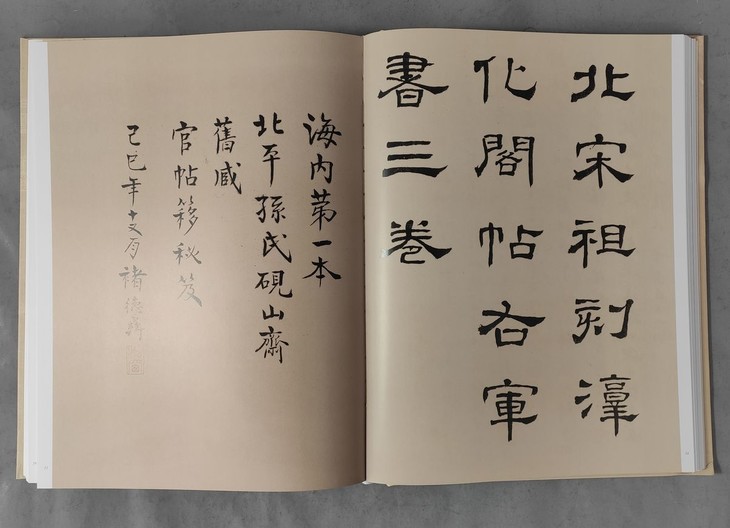 北宋祖刻淳
化閣帖右軍
書三卷
海内第一本
北平孫氏硯山齋
舊臧
官帖簃秘笈
己巳年十月褚德彝